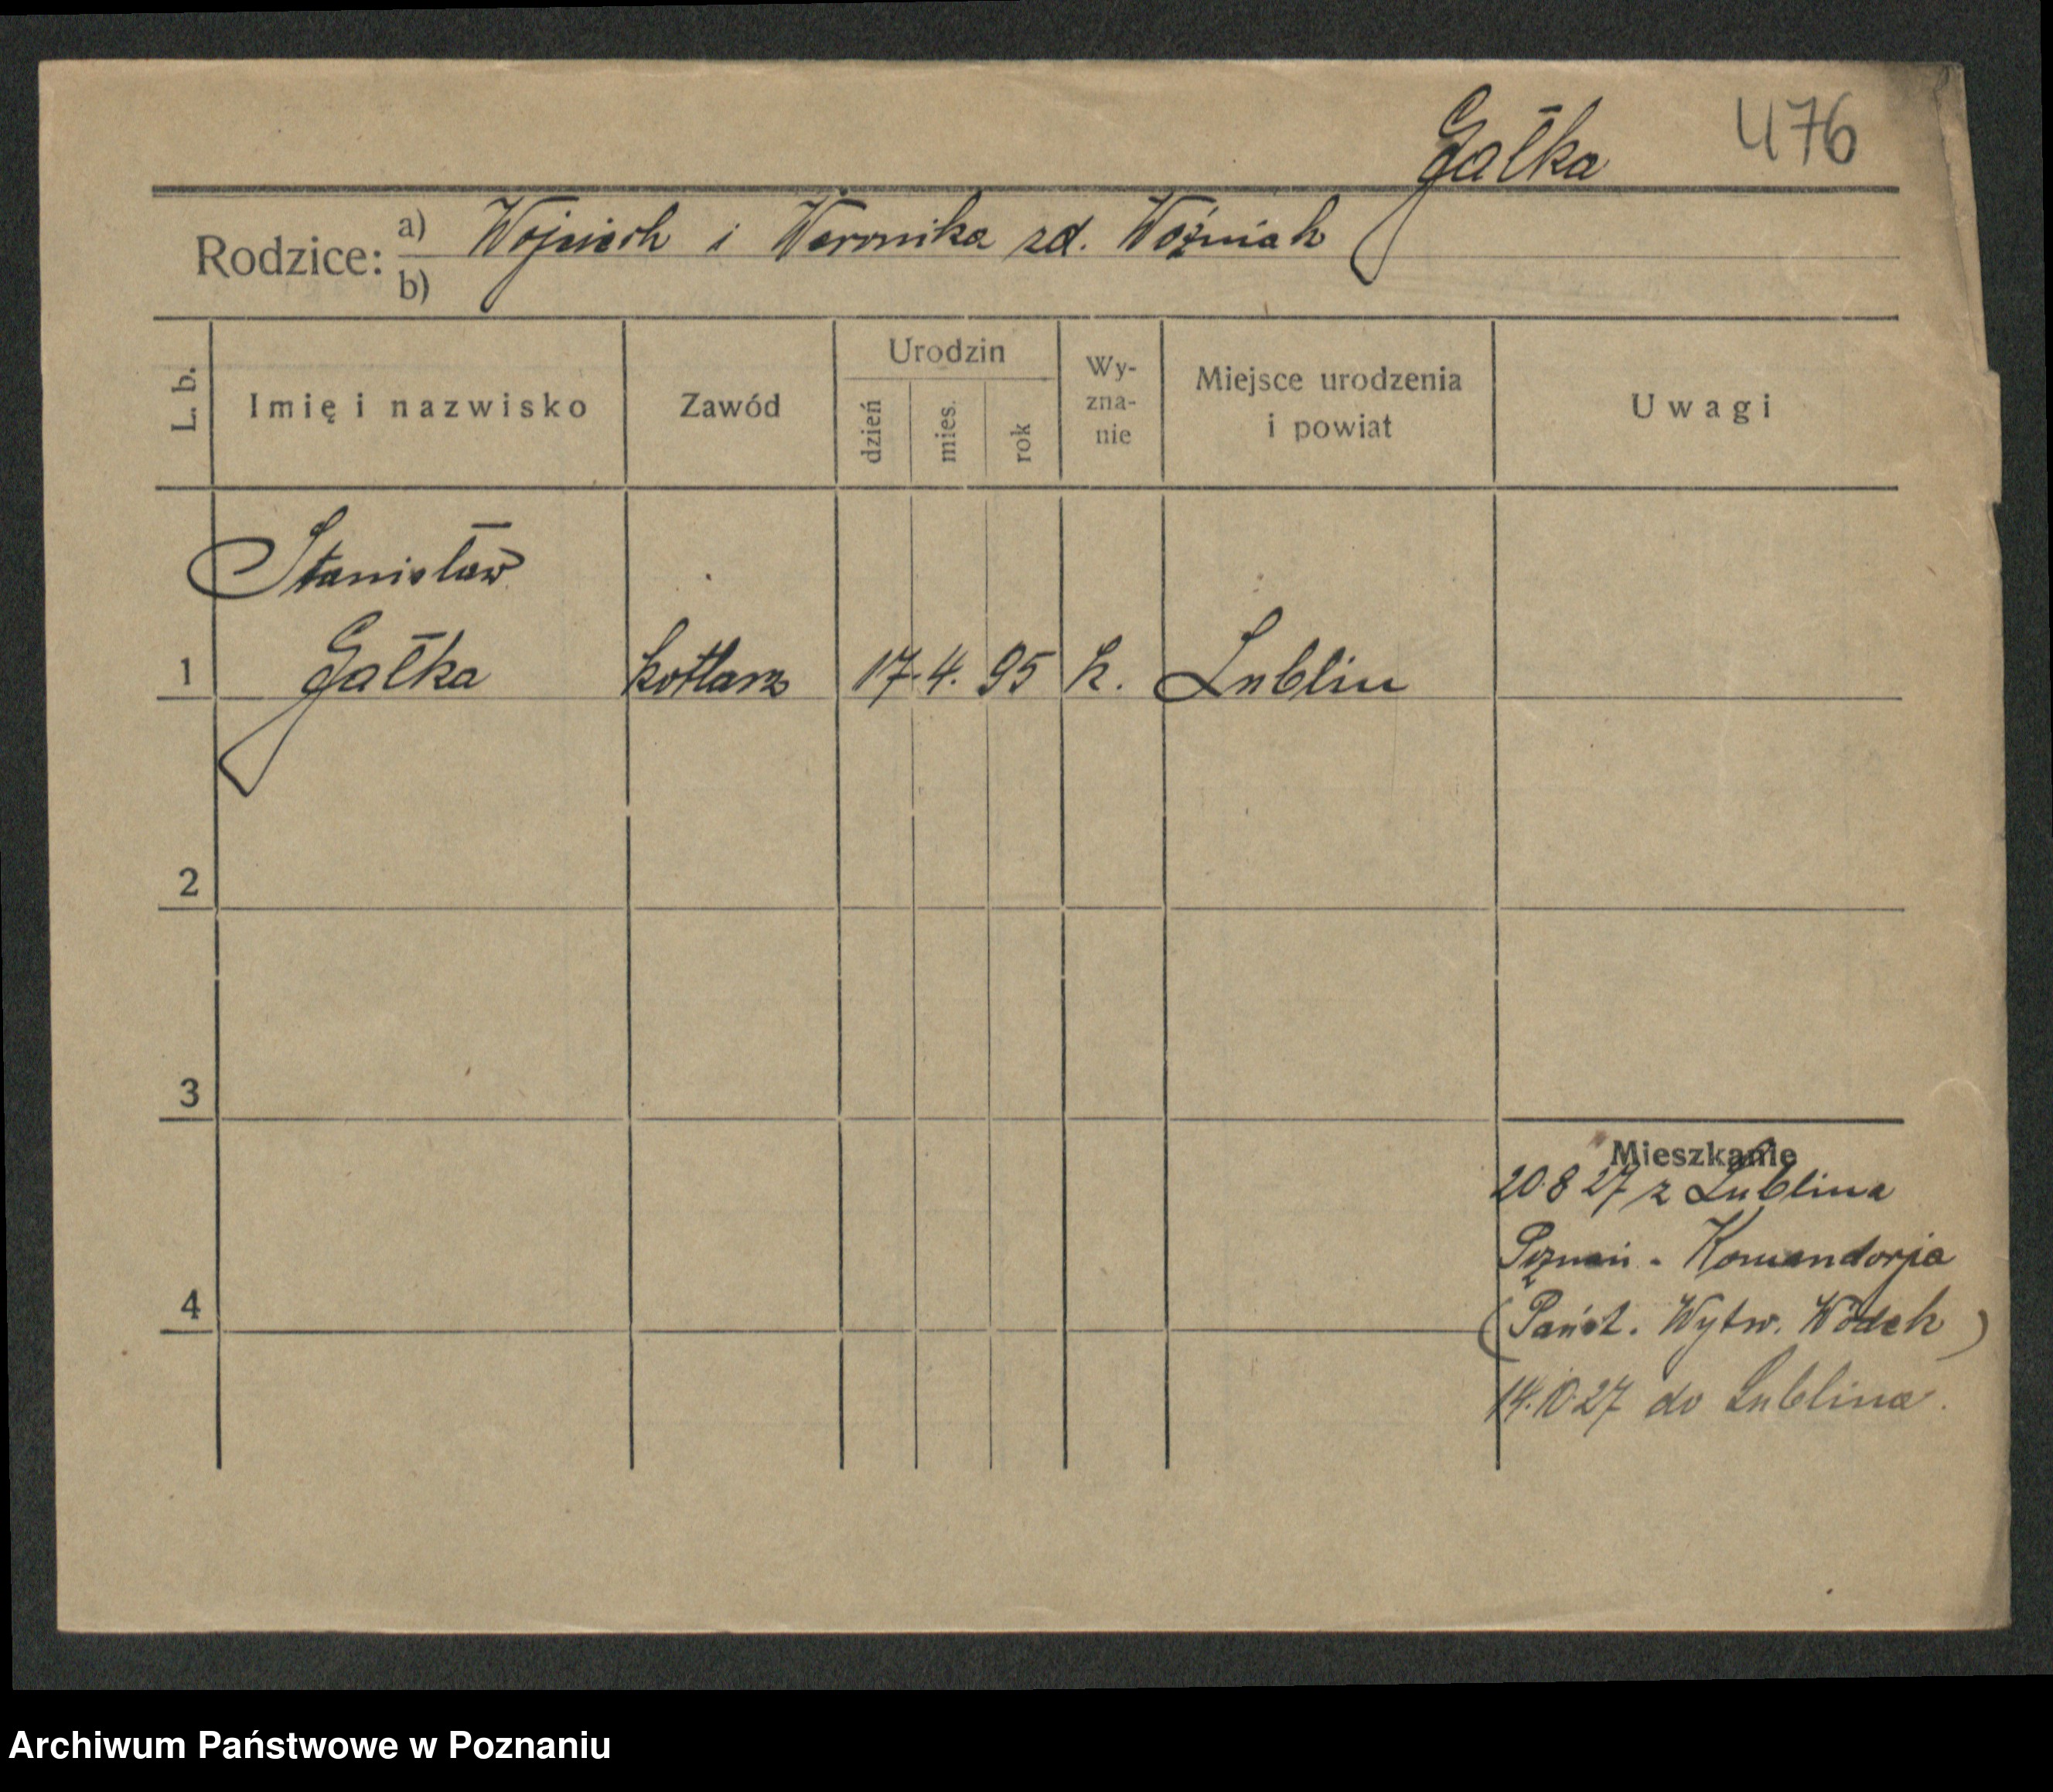 Gałka 476
Rodzice: a) Wojciech i Weronika zd. Woźniak
b)
L. b. Imię i nazwisko Zawód Urodzin dzień mies. rok Wy-zna-nie Miejsce urodzenia i powiat Uwagi
Stanisław
1 Gałka kotlarz 17. 4. 95 k. Lublin
2
3
Mieszkanie
20.8 27 z Lublina
Poznań - Komandorja
4 (Państ. Wytw. Wódek)
14.10.27 do Lublina.
Archiwum Państwowe w Poznaniu